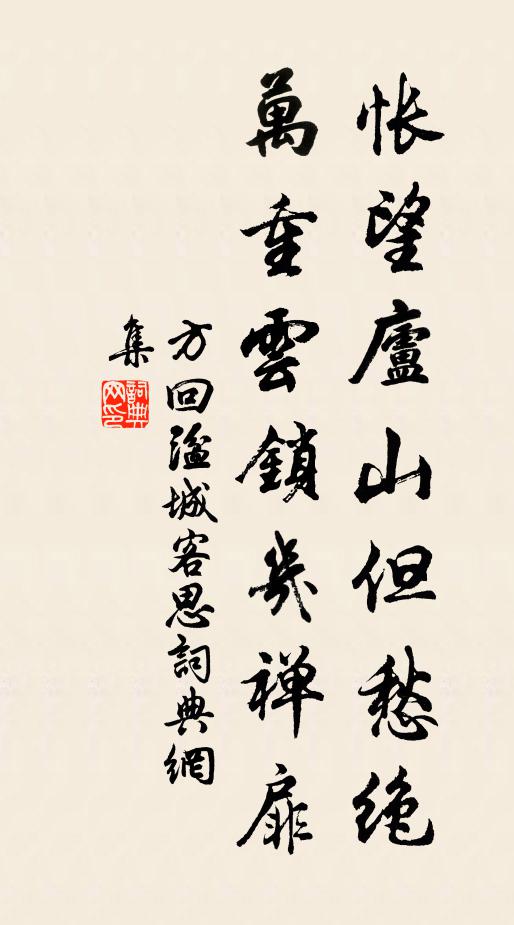 怅望廬山但愁绝
萬重雲鎖幾禅扉
方回溢城客思詞典網
集
詞典网印